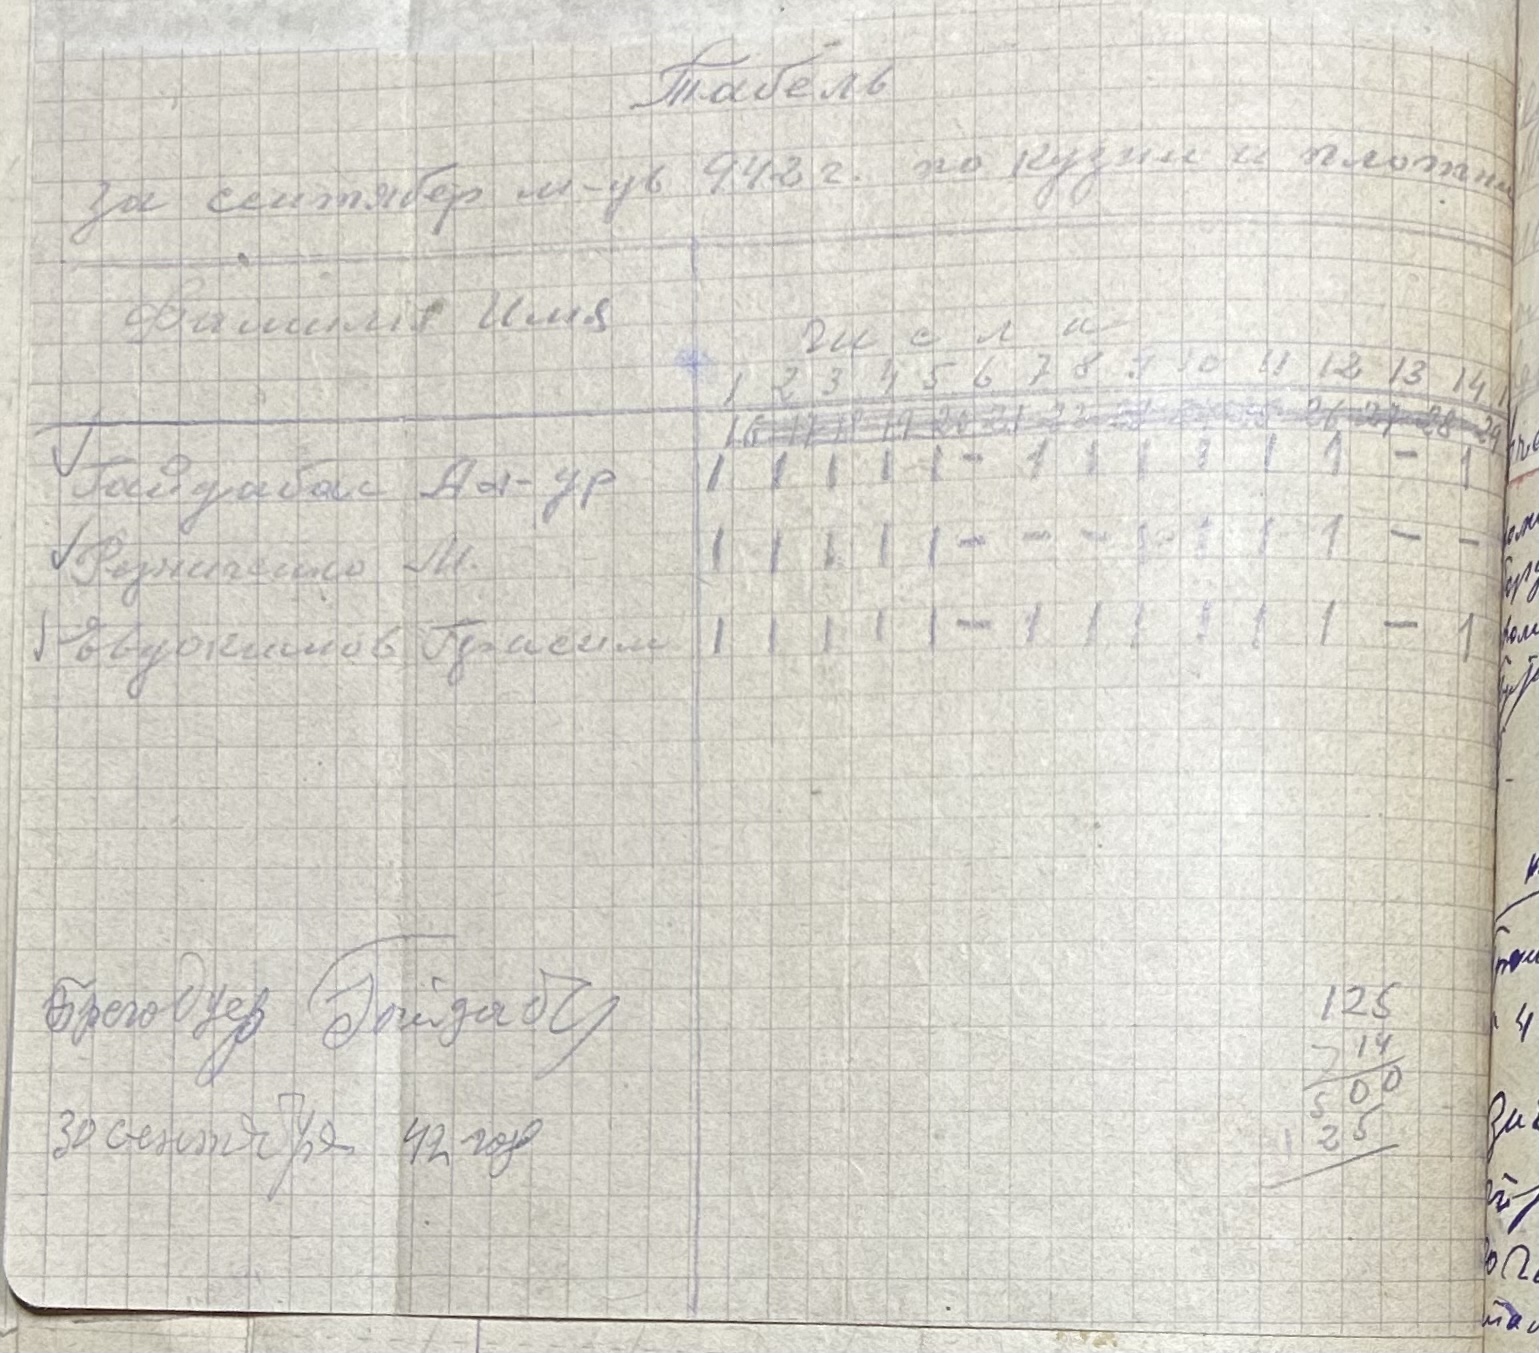 Табель
За сентябер м-ць 942 г. по кузни и плотни
Фамилия Имя
Числа
1 2 3 4 5 6 7 8 9 10 11 12 13 14
16 17 18 19 20 21 22 23 24 25 26 27 28 29
Гайдабас Ал-др 1 1 1 1 1 - 1 1 1 1 1 1 - 1
Резниченко М. 1 1 1 1 1 - - - 1 1 1 1 - -
Евдокимов Герасим 1 1 1 1 1 - 1 1 1 1 1 1 - 1
Брегодцер Гайдаб
30 сентября 42 год
125
14
500
125